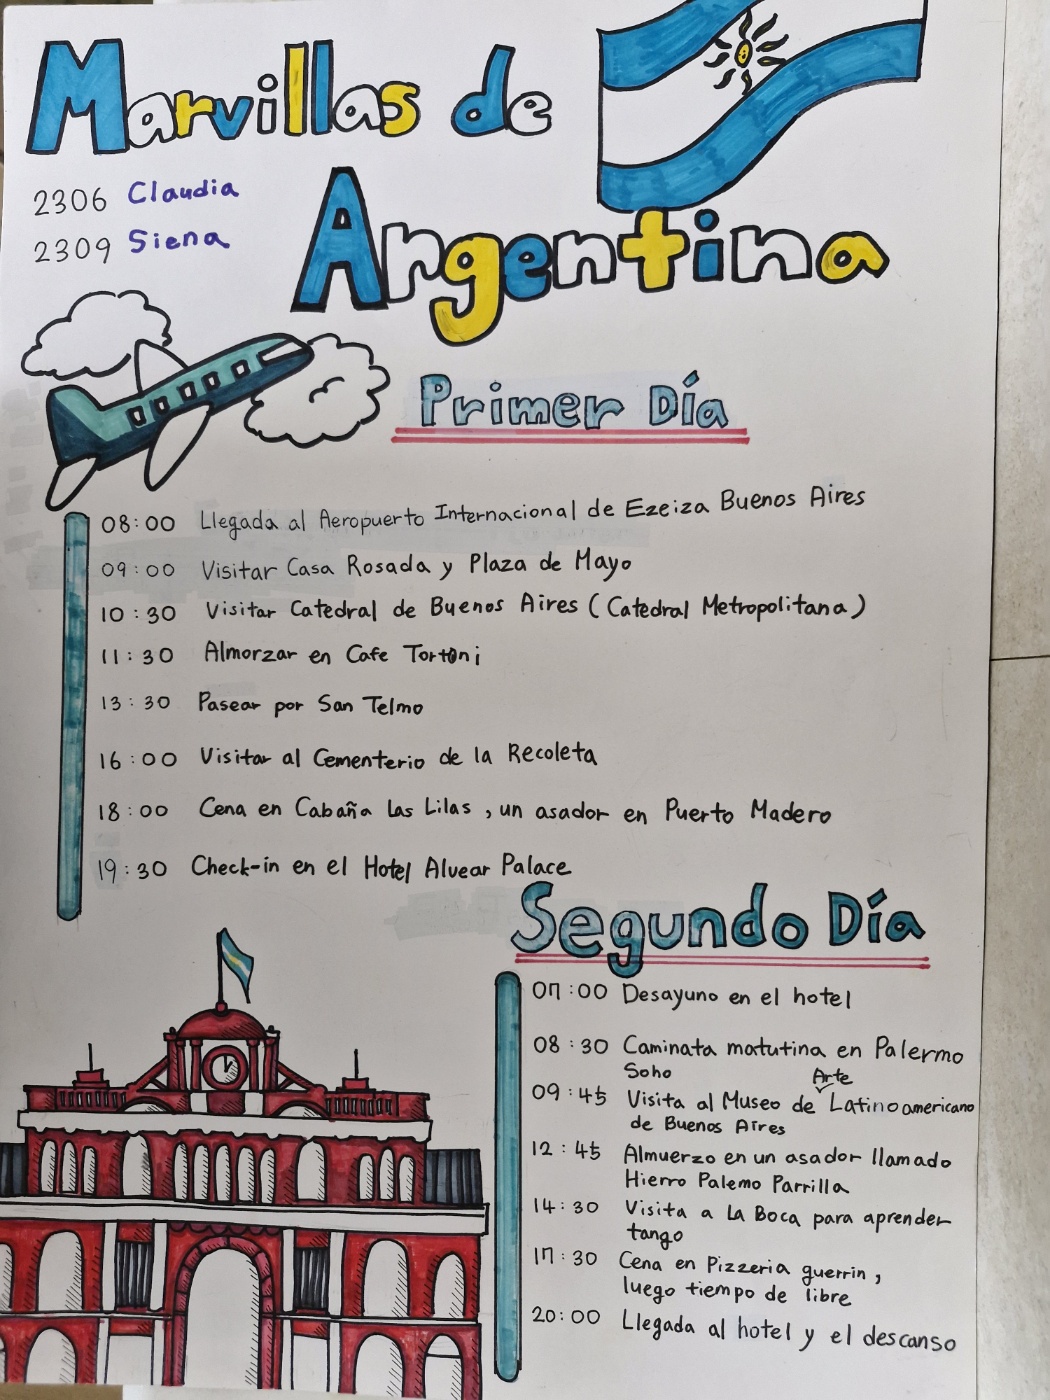 Marvillas de
Argentina
2306 Claudia
2309 Siena
Primer Día
08:00 Llegada al Aeropuerto Internacional de Ezeiza Buenos Aires
09:00 Visitar Casa Rosada y Plaza de Mayo
10:30 Visitar Catedral de Buenos Aires (Catedral Metropolitana)
11:30 Almorzar en Cafe Tortoni
13:30 Pasear por San Telmo
16:00 Visitar al Cementerio de la Recoleta
18:00 Cena en Cabaña Las Lilas, un asador en Puerto Madero
19:30 Check-in en el Hotel Alvear Palace
Segundo Día
07:00 Desayuno en el hotel
08:30 Caminata matutina en Palermo
Soho
09:45 Visita al Museo de Arte Latinoamericano
de Buenos Aires
12:45 Almuerzo en un asador llamado
Hierro Palemo Parrilla
14:30 Visita a La Boca para aprender
tango
17:30 Cena en Pizzeria guerrin,
luego tiempo de libre
20:00 Llegada al hotel y el descanso